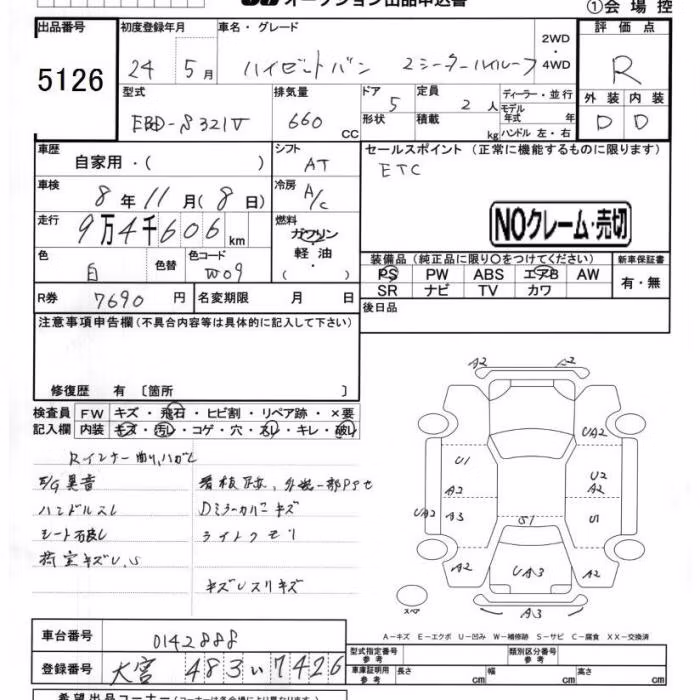 オークション出品申込書
①会場控
出品番号 初度登録年月 車名・グレード 2WD・4WD 評価点
5126 24 5月 ハイゼットバン 2シーターハイルーフ R
型式 排気量 ドア 定員 ディーラー・並行 外装 内装
EBD-S321V 660CC 5 2人 モデル年式 年 D D
形状 積載 kg ハンドル 左・右
車歴 自家用・( ) シフト AT セールスポイント (正常に機能するものに限ります)
ETC
車検 8年11月(8日) 冷房 A/C
走行 9万4千606km 燃料 ガソリン・軽油・( )
NOクレーム・売切
色 白 色替 色コード W09
装備品 (純正品に限り○をつけてください) 新車保証書
PS PW ABS エアB AW 有・無
SR ナビ TV カワ
R券 7690円 名変期限 月 日 後日品
注意事項申告欄(不具合内容等は具体的に記入して下さい)
修復歴 有〔箇所 〕
検査員記入欄 FW キズ・飛石・ヒビ割・リペア跡・×要
内装 キズ・汚レ・コゲ・穴・スレ・キレ・破レ
Rインナー曲り,ハガレ
E/G異音
ハンドルスレ Dミラーカバーキズ
シート破レ ライトクモリ
荷室キズU,S
キズUスリキズ
A2 A2
UA2
U1 U2
A2 A2
UA2 A3 G1 U1
A2 UA3 A2
A3
スペア
A－キズ E－エクボ U－凹み W－補修跡 S－サビ C－腐食 XX－交換済
車台番号 0142888
登録番号 大宮 483 い 7426
型式指定番号 参考 類別区分番号 参考
車庫証明用 参考 長さ cm 幅 cm 高さ cm
希望出品コーナー